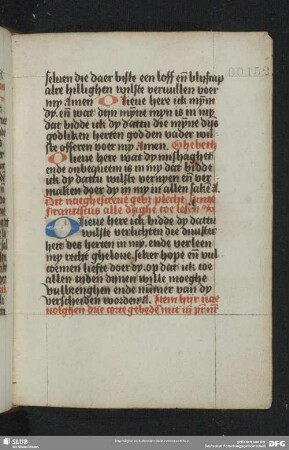 seluen die daer biste een loff eñ blyscap
alre hillighen wilste veruullen voer
my Amen O lieue here ick mÿne
dy. eñ wat dem mÿne myn is in my
dat bidde ick dy dattu die mÿne dijs
godliken herten god den vader wil
ste offeren voer my Amen. Ghebeth
O lieue here wat dy mishaghet
ende onbequeem is in my dat bidde
ick dy dattu wilste vernyen eñ ver
maken doer dy in my in allen sake A
Dit naeghescreue gebet plecht sunte
franciscus alle daghe toe lesen
O lieue here ick bidde dy dattu
wilste verluchten die duuster
heit des herten in my. ende verleen
my recht gheloue, seker hope eñ vul
coemen liefte doer dy. op dat ick toe
allen tyden dynen wille moeghe
vulbrenghen ende nummer van dy
verscheiden worden A. Item hijr nae
volghen drie corte gebede
SLUB
DFG